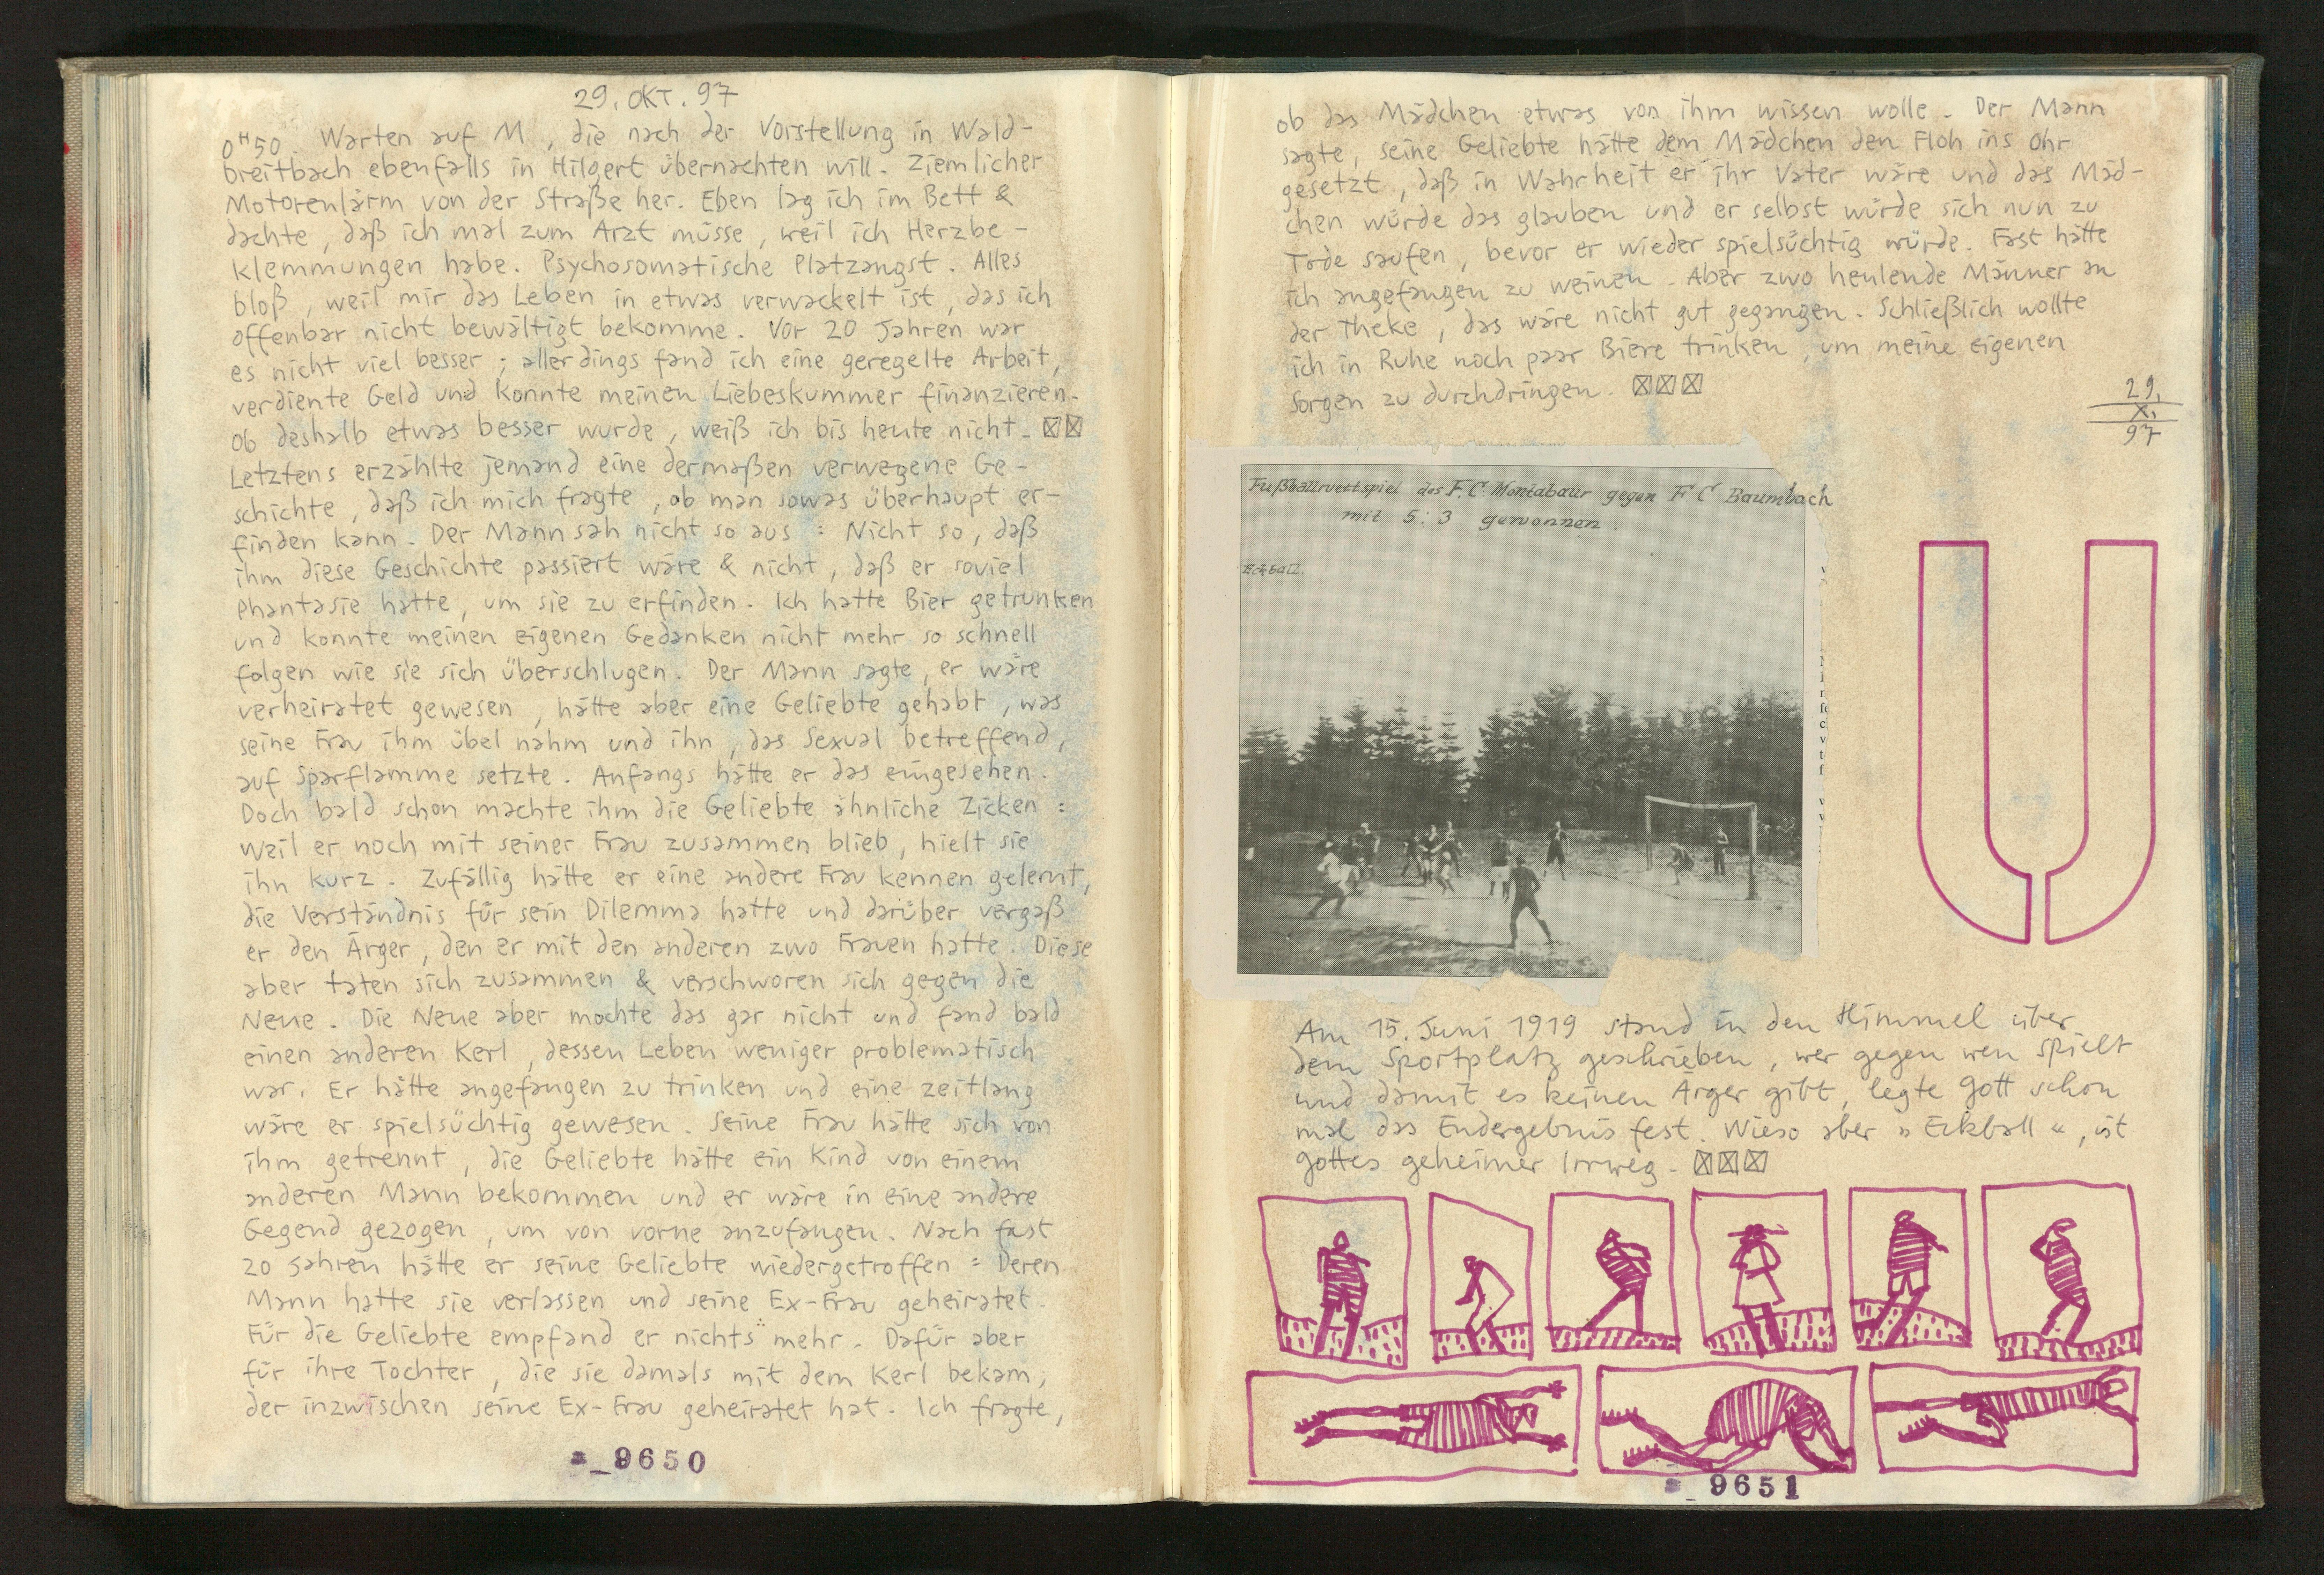 29. OKT. 97
0ᴴ50. Warten auf M, die nach der Vorstellung in Wald-
breitbach ebenfalls in Hilgert übernachten will. Ziemlicher
Motorenlärm von der Straße her. Eben lag ich im Bett &
dachte, daß ich mal zum Arzt müsse, weil ich Herzbe-
klemmungen habe. Psychosomatische Platzangst. Alles
bloß, weil mir das Leben in etwas verwackelt ist, das ich
offenbar nicht bewältigt bekomme. Vor 20 Jahren war
es nicht viel besser; allerdings fand ich eine geregelte Arbeit,
verdiente Geld und konnte meinen Liebeskummer finanzieren.
Ob deshalb etwas besser wurde, weiß ich bis heute nicht.
Letztens erzählte jemand eine dermaßen verwegene Ge-
schichte, daß ich mich fragte, ob man sowas überhaupt er-
finden kann. Der Mann sah nicht so aus: Nicht so, daß
ihm diese Geschichte passiert wäre & nicht, daß er soviel
Phantasie hatte, um sie zu erfinden. Ich hatte Bier getrunken
und konnte meinen eigenen Gedanken nicht mehr so schnell
folgen wie sie sich überschlugen. Der Mann sagte, er wäre
verheiratet gewesen, hätte aber eine Geliebte gehabt, was
seine Frau ihm übel nahm und ihn, das Sexual betreffend,
auf Sparflamme setzte. Anfangs hätte er das eingesehen.
Doch bald schon machte ihm die Geliebte ähnliche Zicken:
Weil er noch mit seiner Frau zusammen blieb, hielt sie
ihn kurz. Zufällig hätte er eine andere Frau kennen gelernt,
die Verständnis für sein Dilemma hatte und darüber vergaß
er den Ärger, den er mit den anderen zwo Frauen hatte. Diese
aber taten sich zusammen & verschworen sich gegen die
Neue. Die Neue aber mochte das gar nicht und fand bald
einen anderen Kerl, dessen Leben weniger problematisch
war. Er hätte angefangen zu trinken und eine zeitlang
wäre er spielsüchtig gewesen. Seine Frau hätte sich von
ihm getrennt, die Geliebte hätte ein Kind von einem
anderen Mann bekommen und er wäre in eine andere
Gegend gezogen, um von vorne anzufangen. Nach fast
20 Jahren hätte er seine Geliebte wiedergetroffen: Deren
Mann hatte sie verlassen und seine Ex-Frau geheiratet.
Für die Geliebte empfand er nichts mehr. Dafür aber
für ihre Tochter, die sie damals mit dem Kerl bekam,
der inzwischen seine Ex-Frau geheiratet hat. Ich fragte,
9650
ob das Mädchen etwas von ihm wissen wolle. Der Mann
sagte, seine Geliebte hätte dem Mädchen den Floh ins Ohr
gesetzt, daß in Wahrheit er ihr Vater wäre und das Mäd-
chen würde das glauben und er selbst würde sich nun zu
Tode saufen, bevor er wieder spielsüchtig würde. Fast hätte
ich angefangen zu weinen. Aber zwo heulende Männer an
der Theke, das wäre nicht gut gegangen. Schließlich wollte
ich in Ruhe noch paar Biere trinken, um meine eigenen
Sorgen zu durchdringen.
29.
X.
97
Fußballwettspiel des F.C. Montabaur gegen F C Baumbach
mit 5:3 gewonnen.
Eckball.
U
Am 15. Juni 1919 stand in den Himmel über
dem Sportplatz geschrieben, wer gegen wen spielt
und damit es keinen Ärger gibt, legte Gott schon
mal das Endergebnis fest. Wieso aber »Eckball«, ist
Gottes geheimer Irrweg.
9651